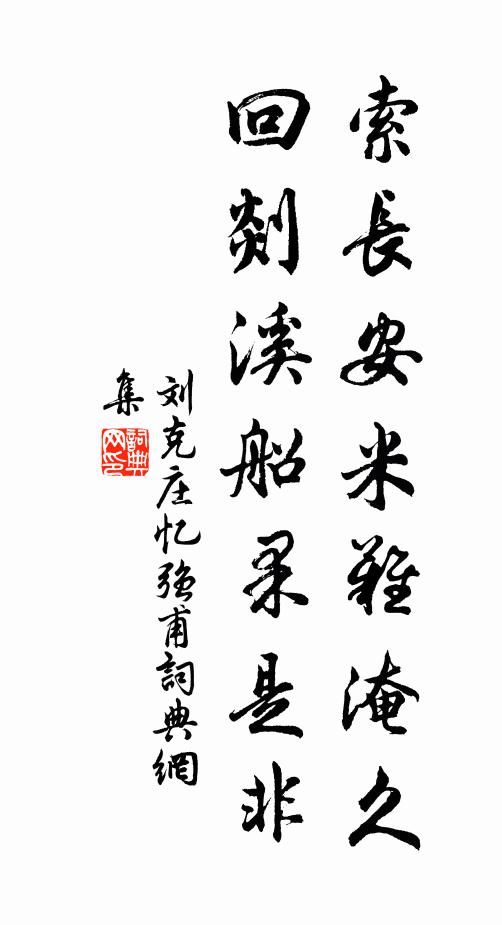 索長安米難淹久
回剡溪船果是非
刘克庄忆强甫詞典網
集
詞典
网印